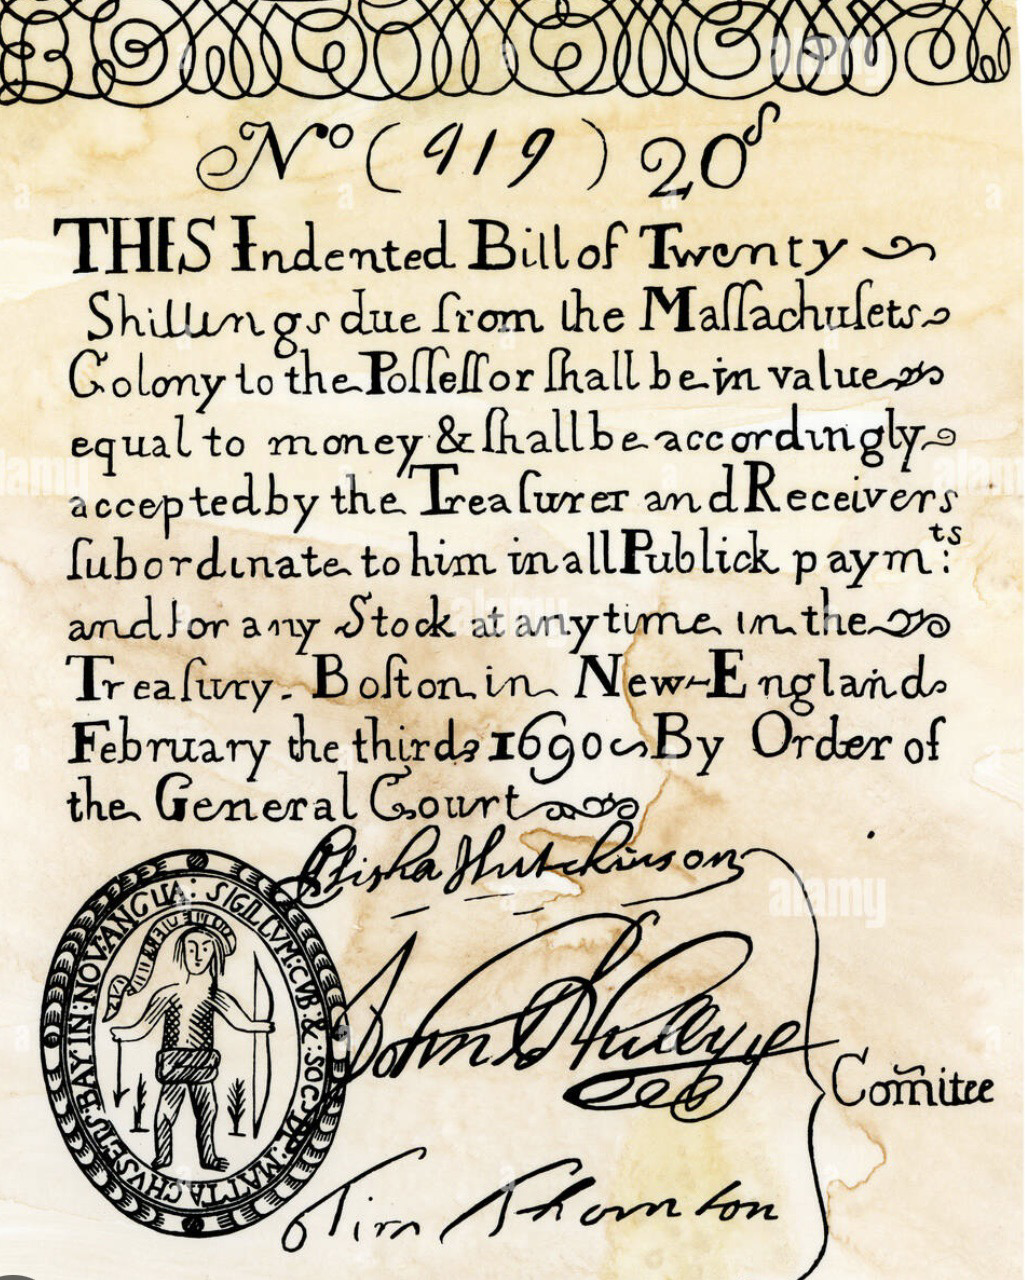 Nº (919) 20ˢ
THIS Indented Bill of Twenty
Shillings due from the Maſſachuſets
Colony to the Poſſeſſor ſhall be in value
equal to money & ſhall be accordingly
accepted by the Treaſurer and Receivers
ſubordinate to him in all Publick paymᵗˢ:
and for any Stock at any time in the
Treaſury. Boſton in New-England
February the third 1690 By Order of
the General Court
Elisha Hutchinson
John
Tim Thornton
Com̃itee
SIGILLVM: GVB: & SOC: DE MATTACHVSETS BAY IN NOV: ANGLIA:
alamy